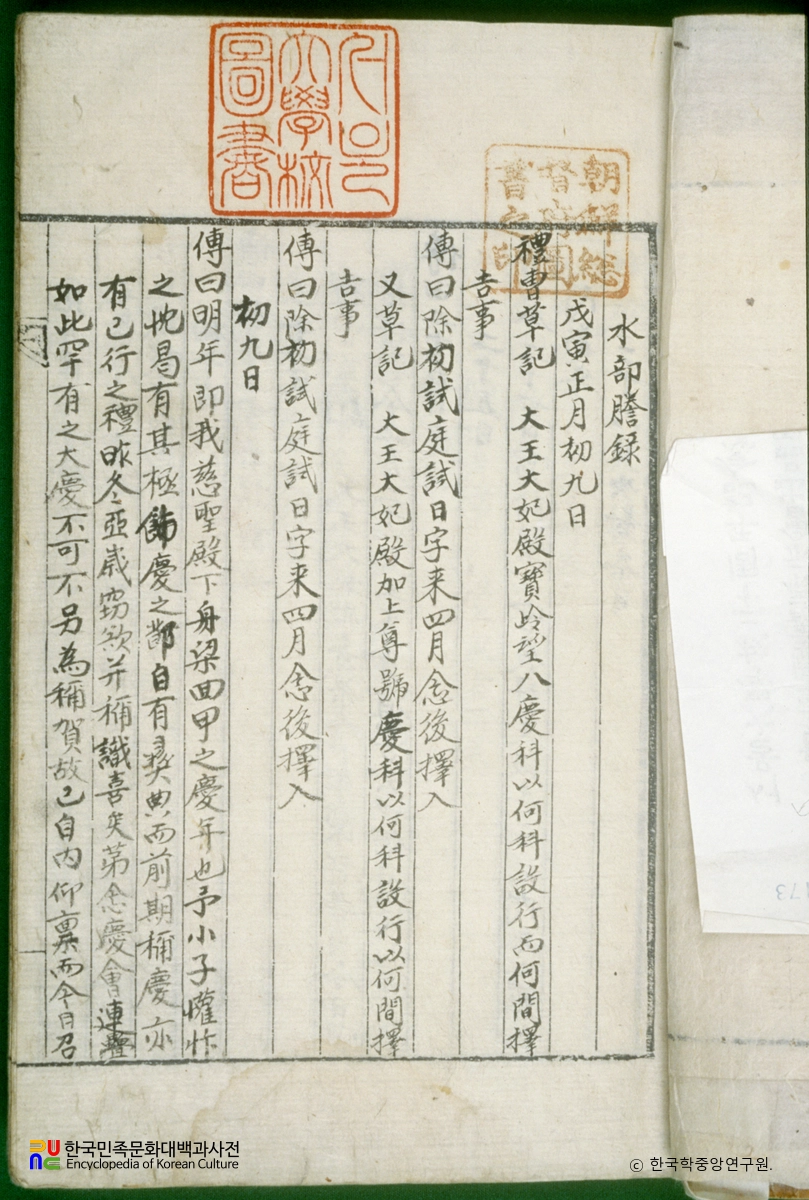 서울大學校圖書
朝鮮總督府圖書之印
水部謄録
戊寅正月初九日
禮曹草記 大王大妃殿寶岭望八慶科以何科設行而何間擇
吉事
傳曰除初試庭試日字来四月念後擇入
又草記 大王大妃殿加上尊號慶科以何科設行以何間擇
吉事
傳曰除初試庭試日字来四月念後擇入
初九日
傳曰明年即我慈聖殿下舟梁回甲之慶年也予小子懽忭
之忱曷有其極飾慶之節自有彛典而前期稱慶亦
有已行之禮昨冬亞歲窃欲并稱識喜矣第念慶會連疊
如此罕有之大慶不可不另為稱賀故已自内仰稟而今日召
한국민족문화대백과사전
Encyclopedia of Korean Culture
© 한국학중앙연구원.